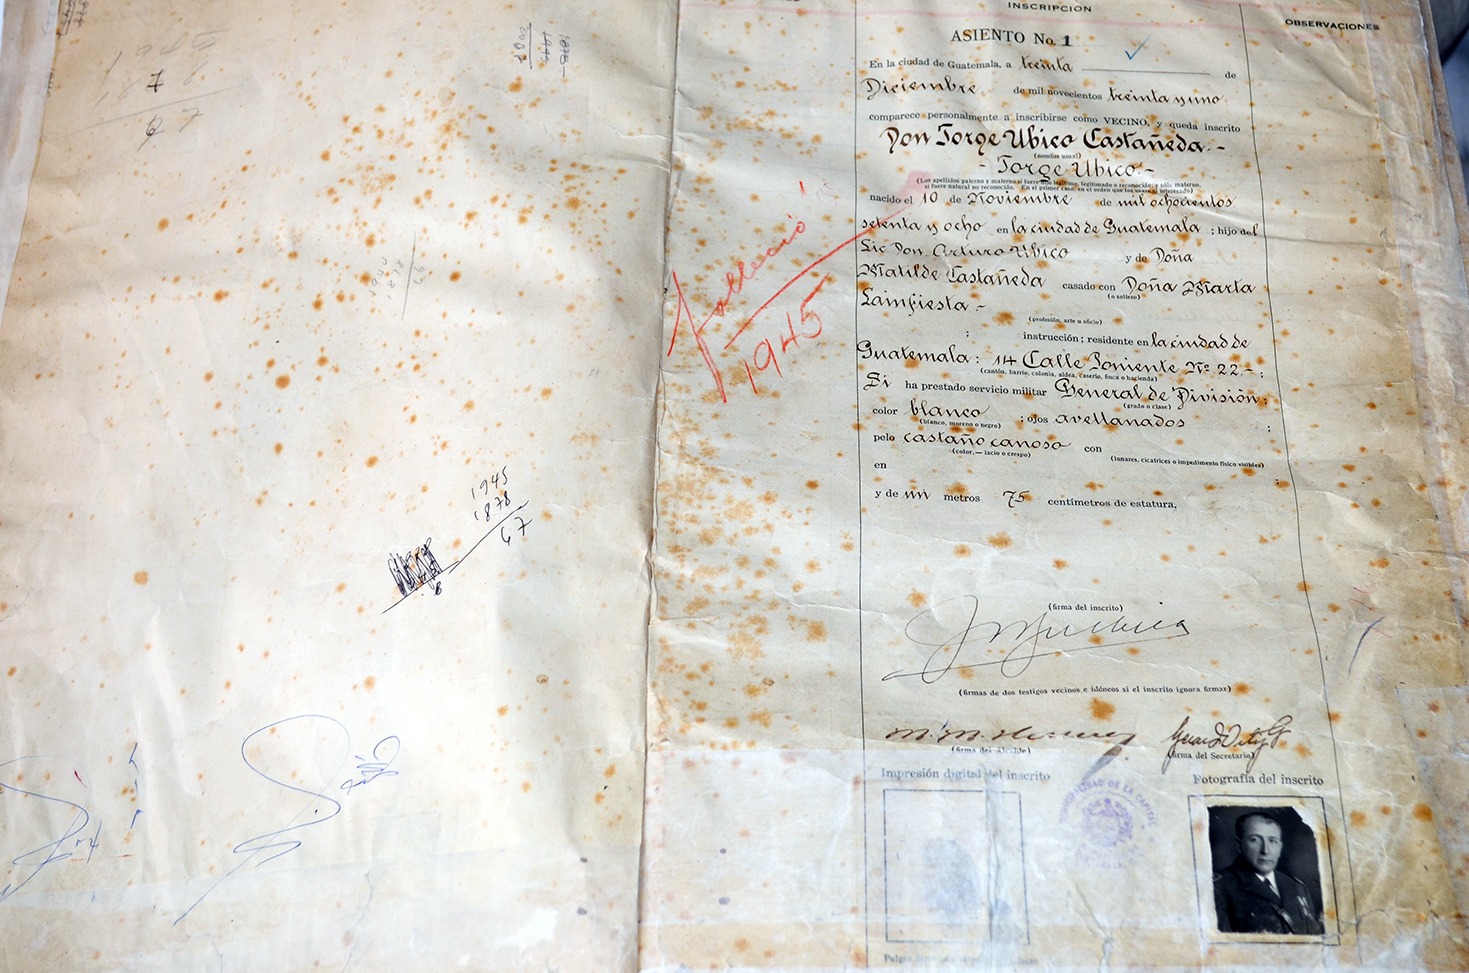 1945
1878
67
INSCRIPCION
OBSERVACIONES
ASIENTO No. 1
En la ciudad de Guatemala, a treinta de
Diciembre de mil novecientos treinta y uno
comparece personalmente a inscribirse como VECINO, y queda inscrito
Don Jorge Ubico Castañeda.-
(nombre usual)
- Jorge Ubico.-
(Los apellidos paterno y materno si fuere hijo legítimo, legitimado o reconocido; y sólo materno,
si fuere natural no reconocido. En el primer caso, en el orden que los usare el interesado)
nacido el 10 de Noviembre de mil ochocientos
setenta y ocho en la ciudad de Guatemala ; hijo del
Lic Don Arturo Ubico y de Doña
Matilde Castañeda casado con Doña Marta
(o soltero)
Lainfiesta -
(profesión, arte u oficio)
; instrucción; residente en la ciudad de
Guatemala: 14 Calle Poniente Nº 22.- ;
(cantón, barrio, colonia, aldea, caserío, finca o hacienda)
Si ha prestado servicio militar General de División;
(grado o clase)
color blanco ; ojos avellanados ;
(blanco, moreno o negro)
pelo castaño canoso con
(color,—lacio o crespo)
(lunares, cicatrices o impedimento físico visibles)
en ;
y de un metros 75 centímetros de estatura,
falleció
1945
(firma del inscrito)
(firmas de dos testigos vecinos e idóneos si el inscrito ignora firmar)
(firma del Alcalde)
(firma del Secretario)
Impresión digital del inscrito
Fotografía del inscrito
MUNICIPALIDAD DE LA CAPITAL